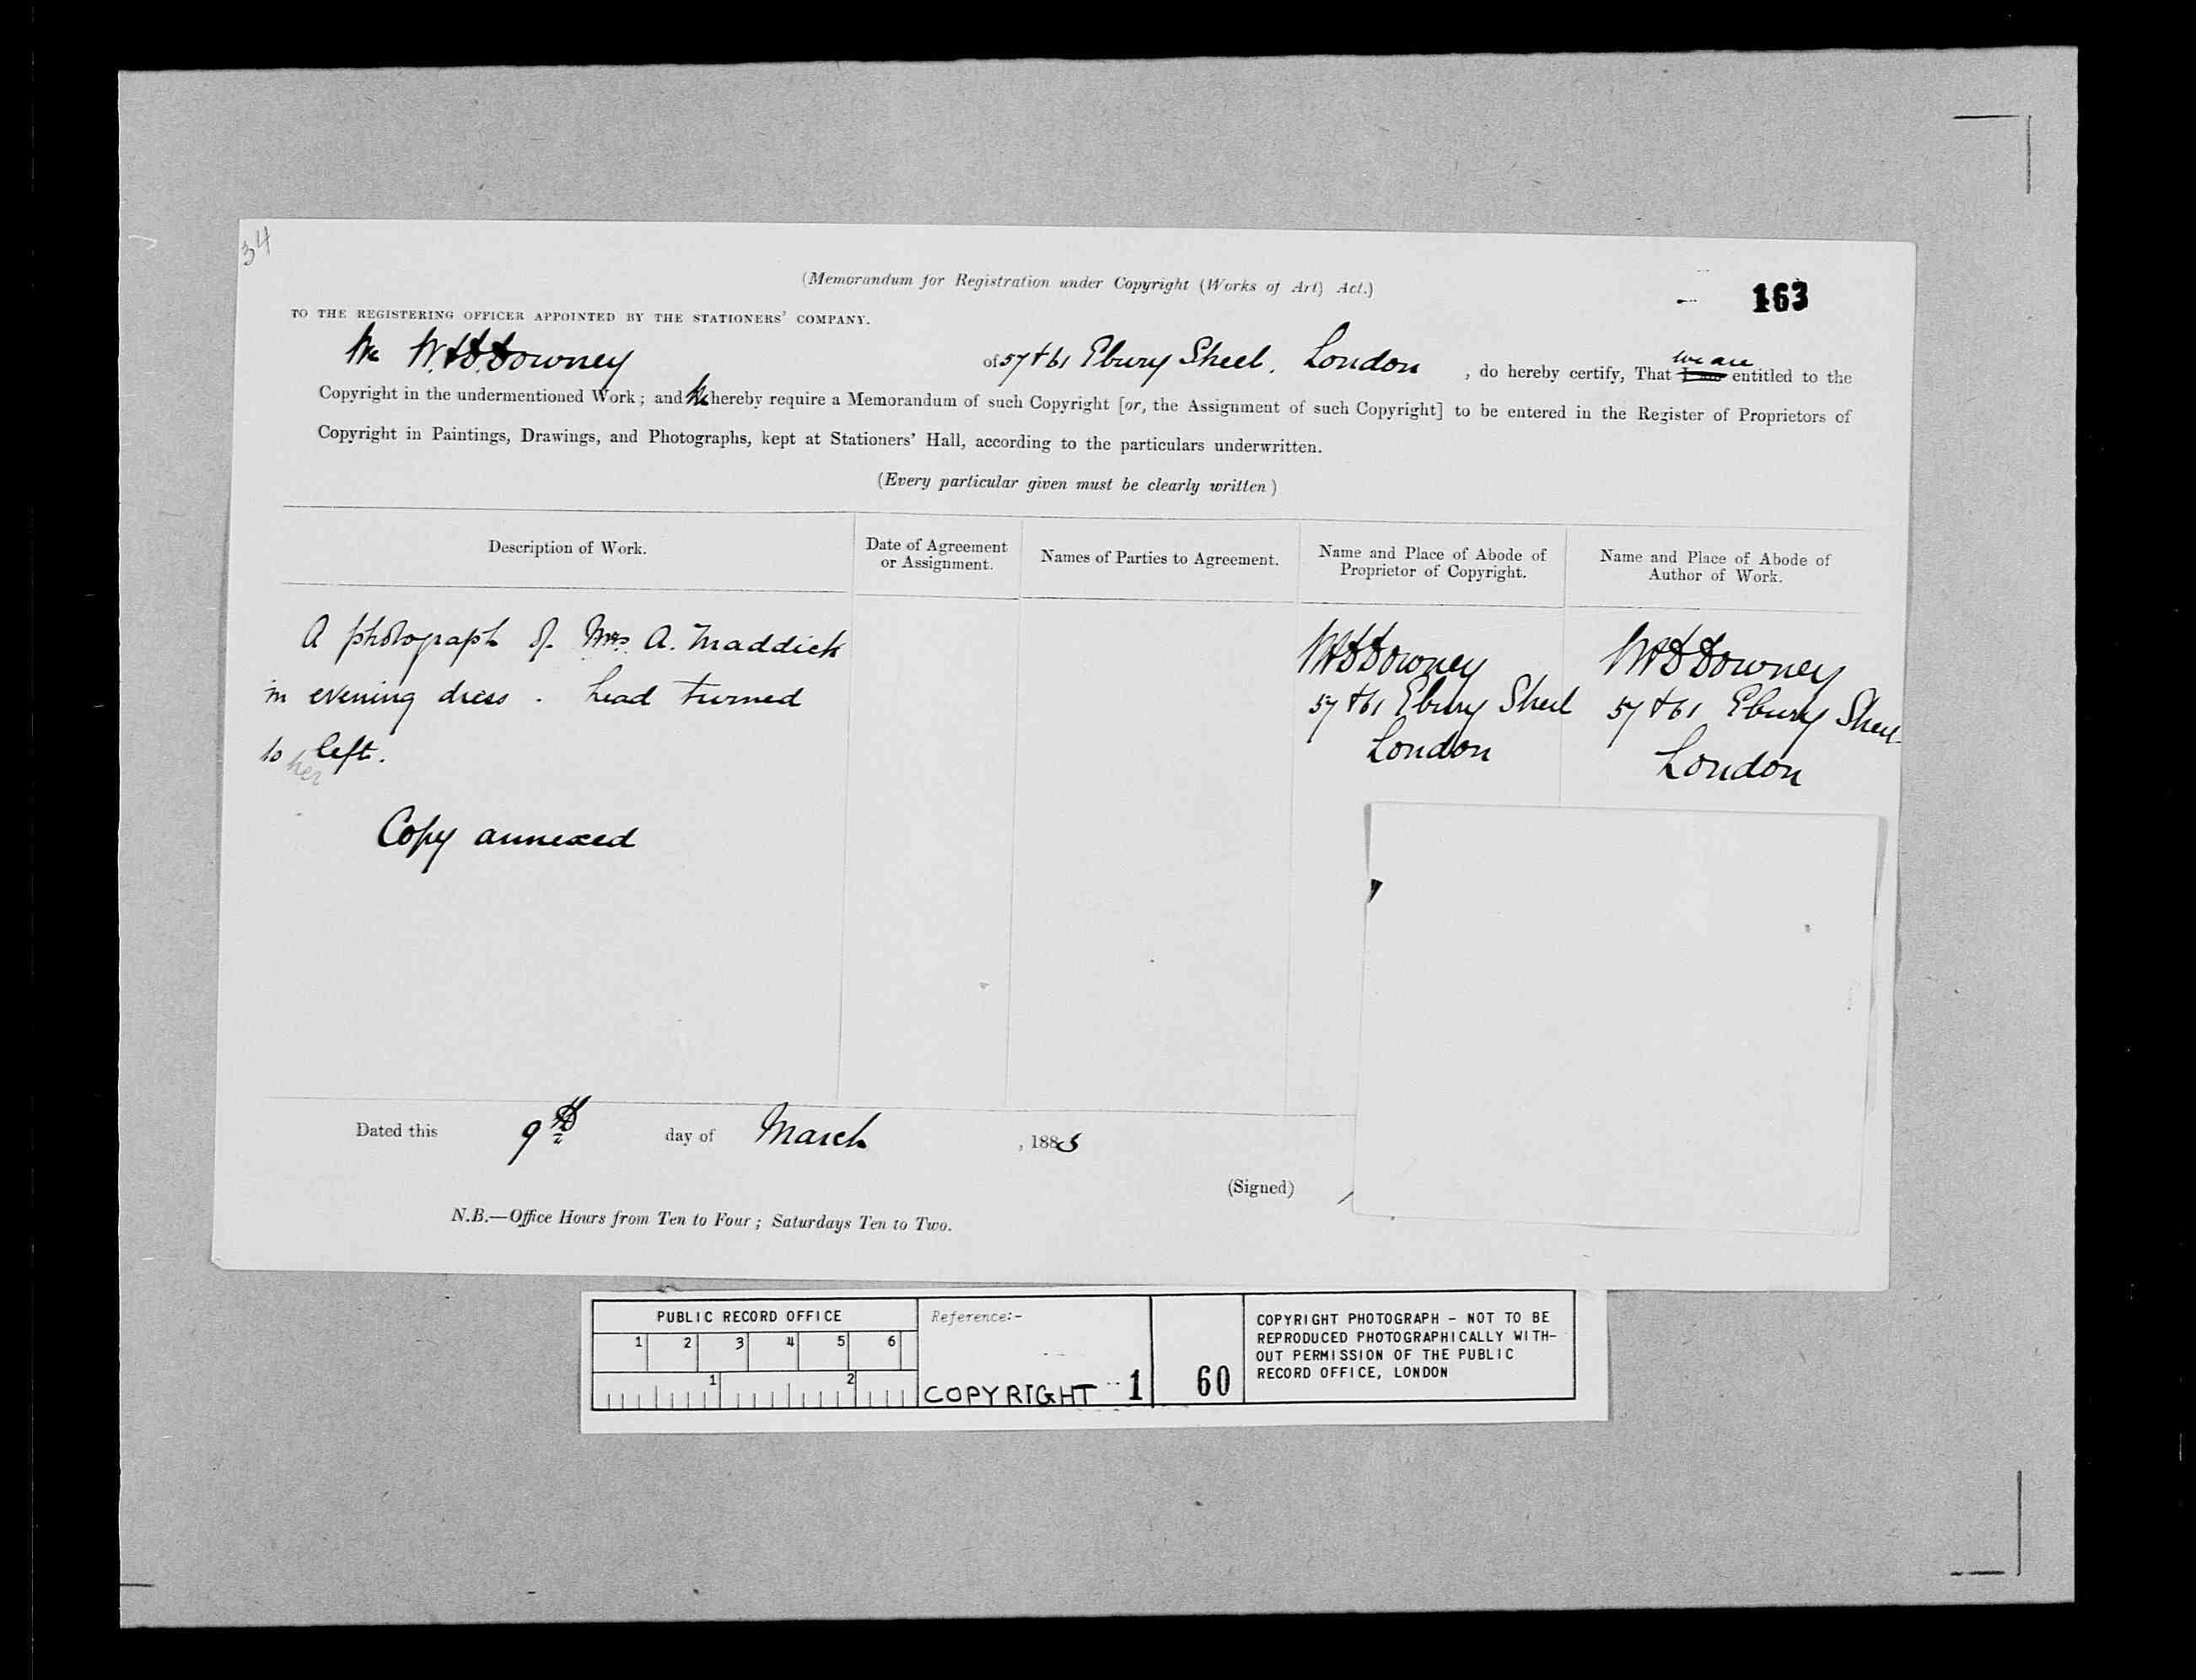 34
(Memorandum for Registration under Copyright (Works of Art) Act.)
163
TO THE REGISTERING OFFICER APPOINTED BY THE STATIONERS' COMPANY.
We W. & D. Downey of 57 & 61 Ebury Street. London , do hereby certify, That we are I am entitled to the
Copyright in the undermentioned Work; and We hereby require a Memorandum of such Copyright [or, the Assignment of such Copyright] to be entered in the Register of Proprietors of
Copyright in Paintings, Drawings, and Photographs, kept at Stationers' Hall, according to the particulars underwritten.
(Every particular given must be clearly written)
Description of Work.
Date of Agreement
or Assignment.
Names of Parties to Agreement.
Name and Place of Abode of
Proprietor of Copyright.
Name and Place of Abode of
Author of Work.
A photograph of Mrs. A. Maddick
in evening dress. head turned
to her left.
Copy annexed
W & D Downey
57 & 61 Ebury Street
London
W & D Downey
57 & 61 Ebury Street
London
Dated this 9th day of March , 1885
(Signed)
N.B.—Office Hours from Ten to Four; Saturdays Ten to Two.
PUBLIC RECORD OFFICE
1 2 3 4 5 6
1 2
Reference:-
COPYRIGHT 1
60
COPYRIGHT PHOTOGRAPH - NOT TO BE
REPRODUCED PHOTOGRAPHICALLY WITH-
OUT PERMISSION OF THE PUBLIC
RECORD OFFICE, LONDON